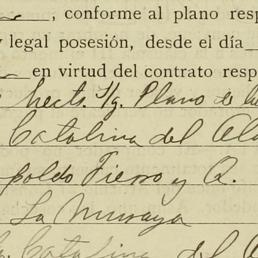 , conforme al plano resp
y legal posesión, desde el día
en virtud del contrato resp
hects. Plano de
Catalina del
poldo Fierro y Q.
La Muraya
Catalina del